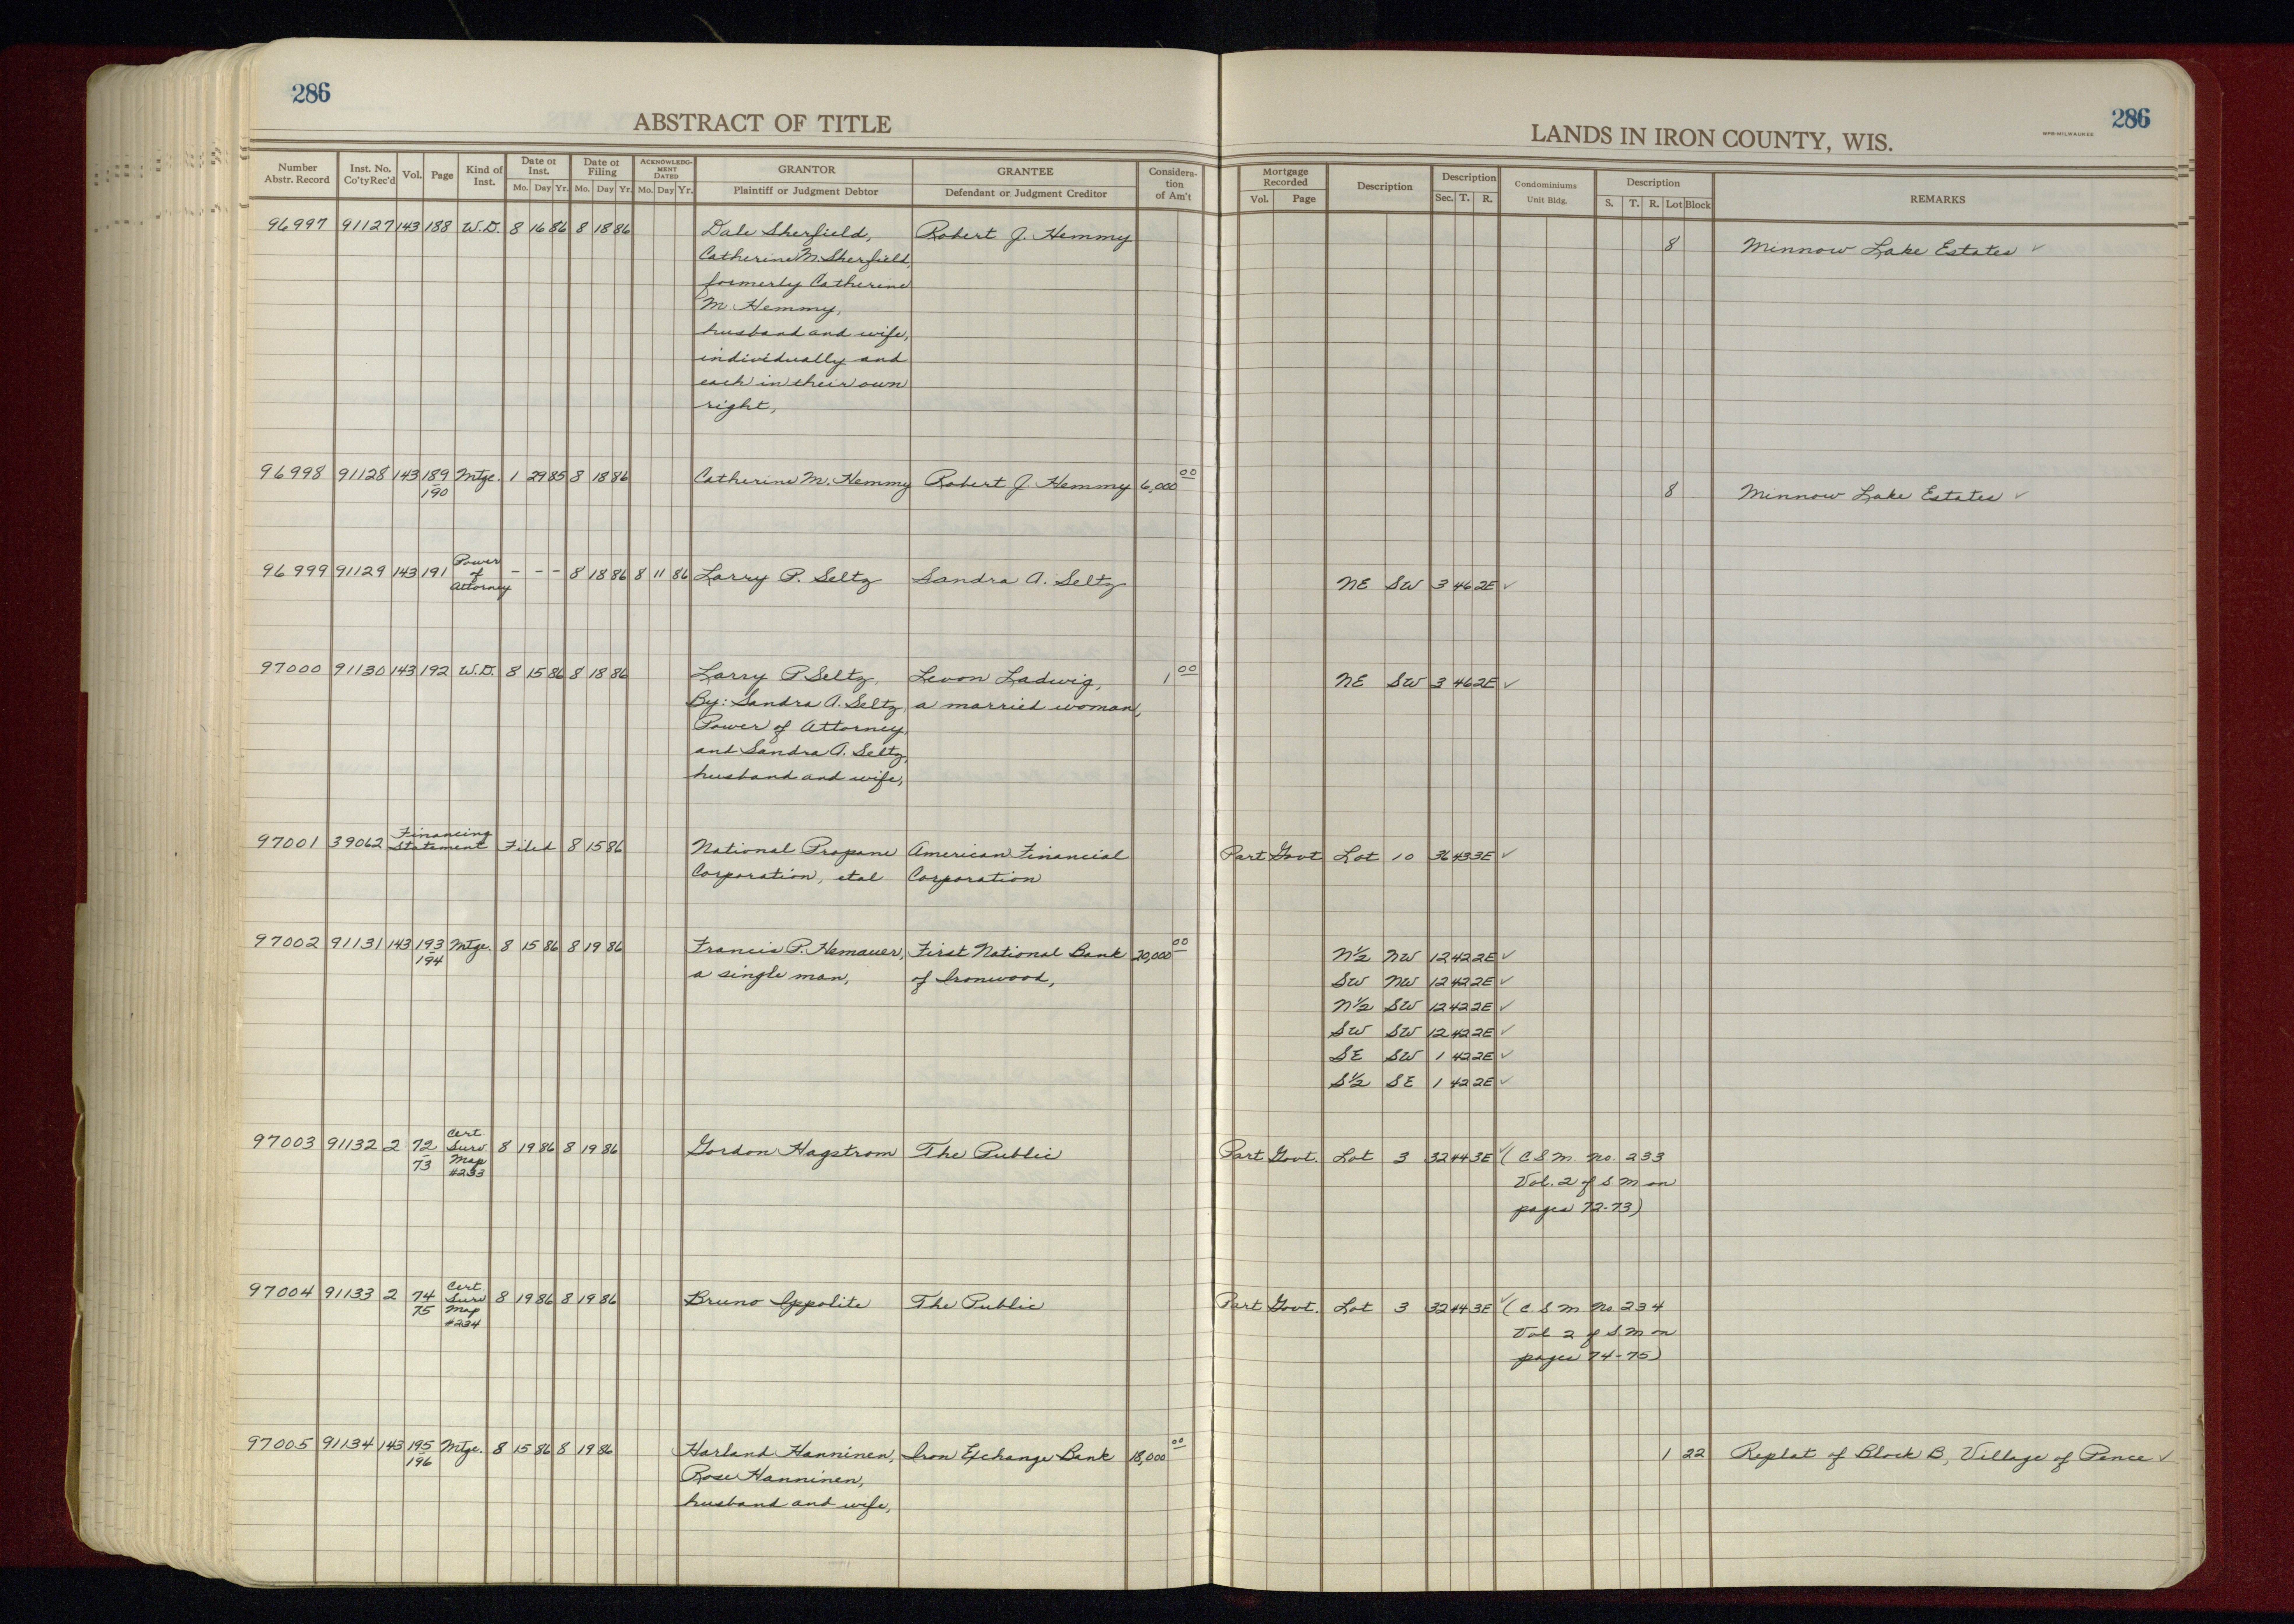 286
ABSTRACT OF TITLE
LANDS IN IRON COUNTY, WIS.
WPB-MILWAUKEE
286
Number Abstr. Record Inst. No. Co'ty Rec'd Vol. Page Kind of Inst. Date of Inst. Mo. Day Yr. Date of Filing Mo. Day Yr. ACKNOWLEDGMENT DATED Mo. Day Yr. GRANTOR Plaintiff or Judgment Debtor GRANTEE Defendant or Judgment Creditor Consideration of Am't
Mortgage Recorded Vol. Page Description Description Sec. T. R. Condominiums Unit Bldg. Description S. T. R. Lot Block REMARKS
96997 91127 143 188 W.D. 8 16 86 8 18 86 Dale Sherfield, Robert J. Hemmy 8 Minnow Lake Estates ✓
Catherine M. Sherfield,
formerly Catherine
M. Hemmy,
husband and wife,
individually and
each in their own
right,
96998 91128 143 189-190 Mtge. 1 29 85 8 18 86 Catherine M. Hemmy Robert J. Hemmy 6,000 00 8 Minnow Lake Estates ✓
96999 91129 143 191 Power of Attorney - - - 8 18 86 8 11 86 Larry P. Seltz Sandra A. Seltz NE SW 3 46 2E ✓
97000 91130 143 192 W.D. 8 15 86 8 18 86 Larry P Seltz, Levon Ladwig, 1 00 NE SW 3 46 2E ✓
By: Sandra A. Seltz, a married woman,
Power of Attorney,
and Sandra A. Seltz,
husband and wife,
97001 39062 Financing Statement Filed 8 15 86 National Propane American Financial Part Govt Lot 10 36 43 3E ✓
Corporation, etal Corporation
97002 91131 143 193-194 Mtge. 8 15 86 8 19 86 Francis P. Hemauer, First National Bank 20,000 00 N½ NW 12 42 2E ✓
a single man, of Ironwood, SW NW 12 42 2E ✓
N½ SW 12 42 2E ✓
SW SW 12 42 2E ✓
SE SW 1 42 2E ✓
S½ SE 1 42 2E ✓
97003 91132 2 72-73 Cert Surv Map #233 8 19 86 8 19 86 Gordon Hagstrom The Public Part Govt. Lot 3 32 44 3E ✓ (C.S.M. No. 233
Vol. 2 of S M on
pages 72-73)
97004 91133 2 74-75 Cert. Surv Map #234 8 19 86 8 19 86 Bruno Ippolite The Public Part Govt. Lot 3 32 44 3E ✓ (C.S.M. No. 234
Vol 2 of S M on
pages 74-75)
97005 91134 143 195-196 Mtge. 8 15 86 8 19 86 Harland Hanninen, Iron Exchange Bank 18,000 00 1 22 Replat of Block B, Village of Pence ✓
Rose Hanninen,
husband and wife,